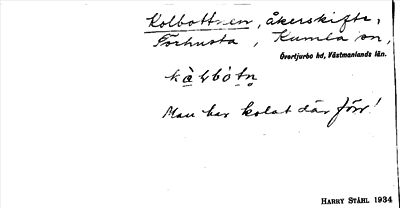 Kolbottnen, åkerskifte,
Förhusta, Kumla sn,
Övertjurbo hd, Västmanlands län.
Man har kolat där förr!
HARRY STÅHL 1934